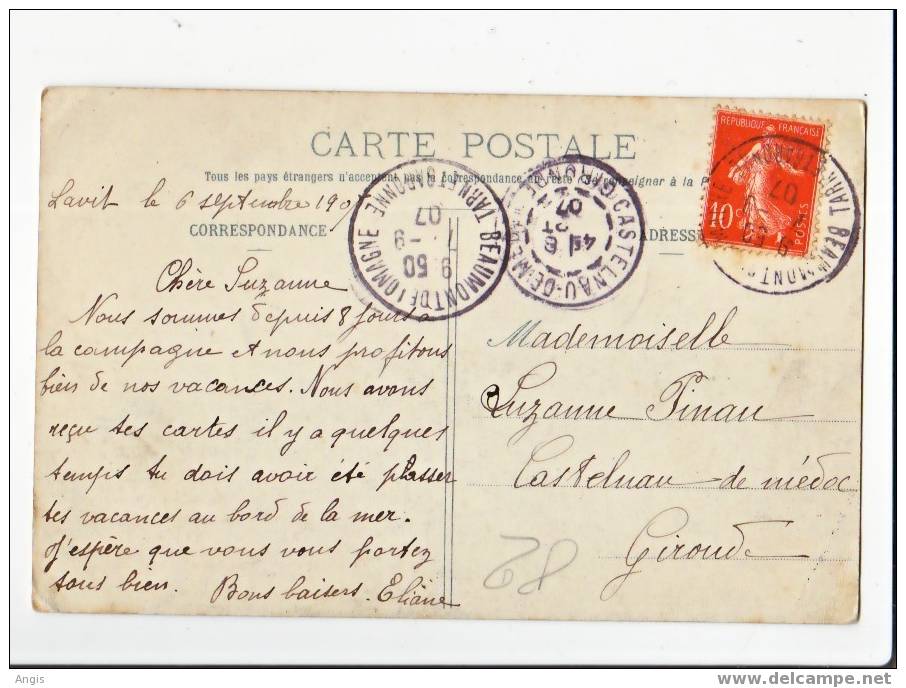 CARTE POSTALE
Tous les pays étrangers n'acceptent pas la correspondance au recto (Se renseigner à la P
CORRESPONDANCE
ADRESSE
Lavit le 6 septembre 1907
Chère Suzanne
Nous sommes depuis 8 jours a
la campagne et nous profitons
bien de nos vacances. Nous avons
reçu tes cartes il y a quelques
temps tu dois avoir été passer
tes vacances au bord de la mer.
J'espère que vous vous portez
tous bien. Bons baisers. Eliane
BEAUMONT DE LOMAGNE
TARN ET GARONNE
9 50
9
07
CASTELNAU-DE-MEDOC
GIRONDE
07
REPUBLIQUE FRANÇAISE
10 c
POSTES
BEAUMONT D
TARN ET GARONN
07
Mademoiselle
Suzanne Pinau
Castelnau de médoc
Gironde
28
Angis
www.delcampe.net